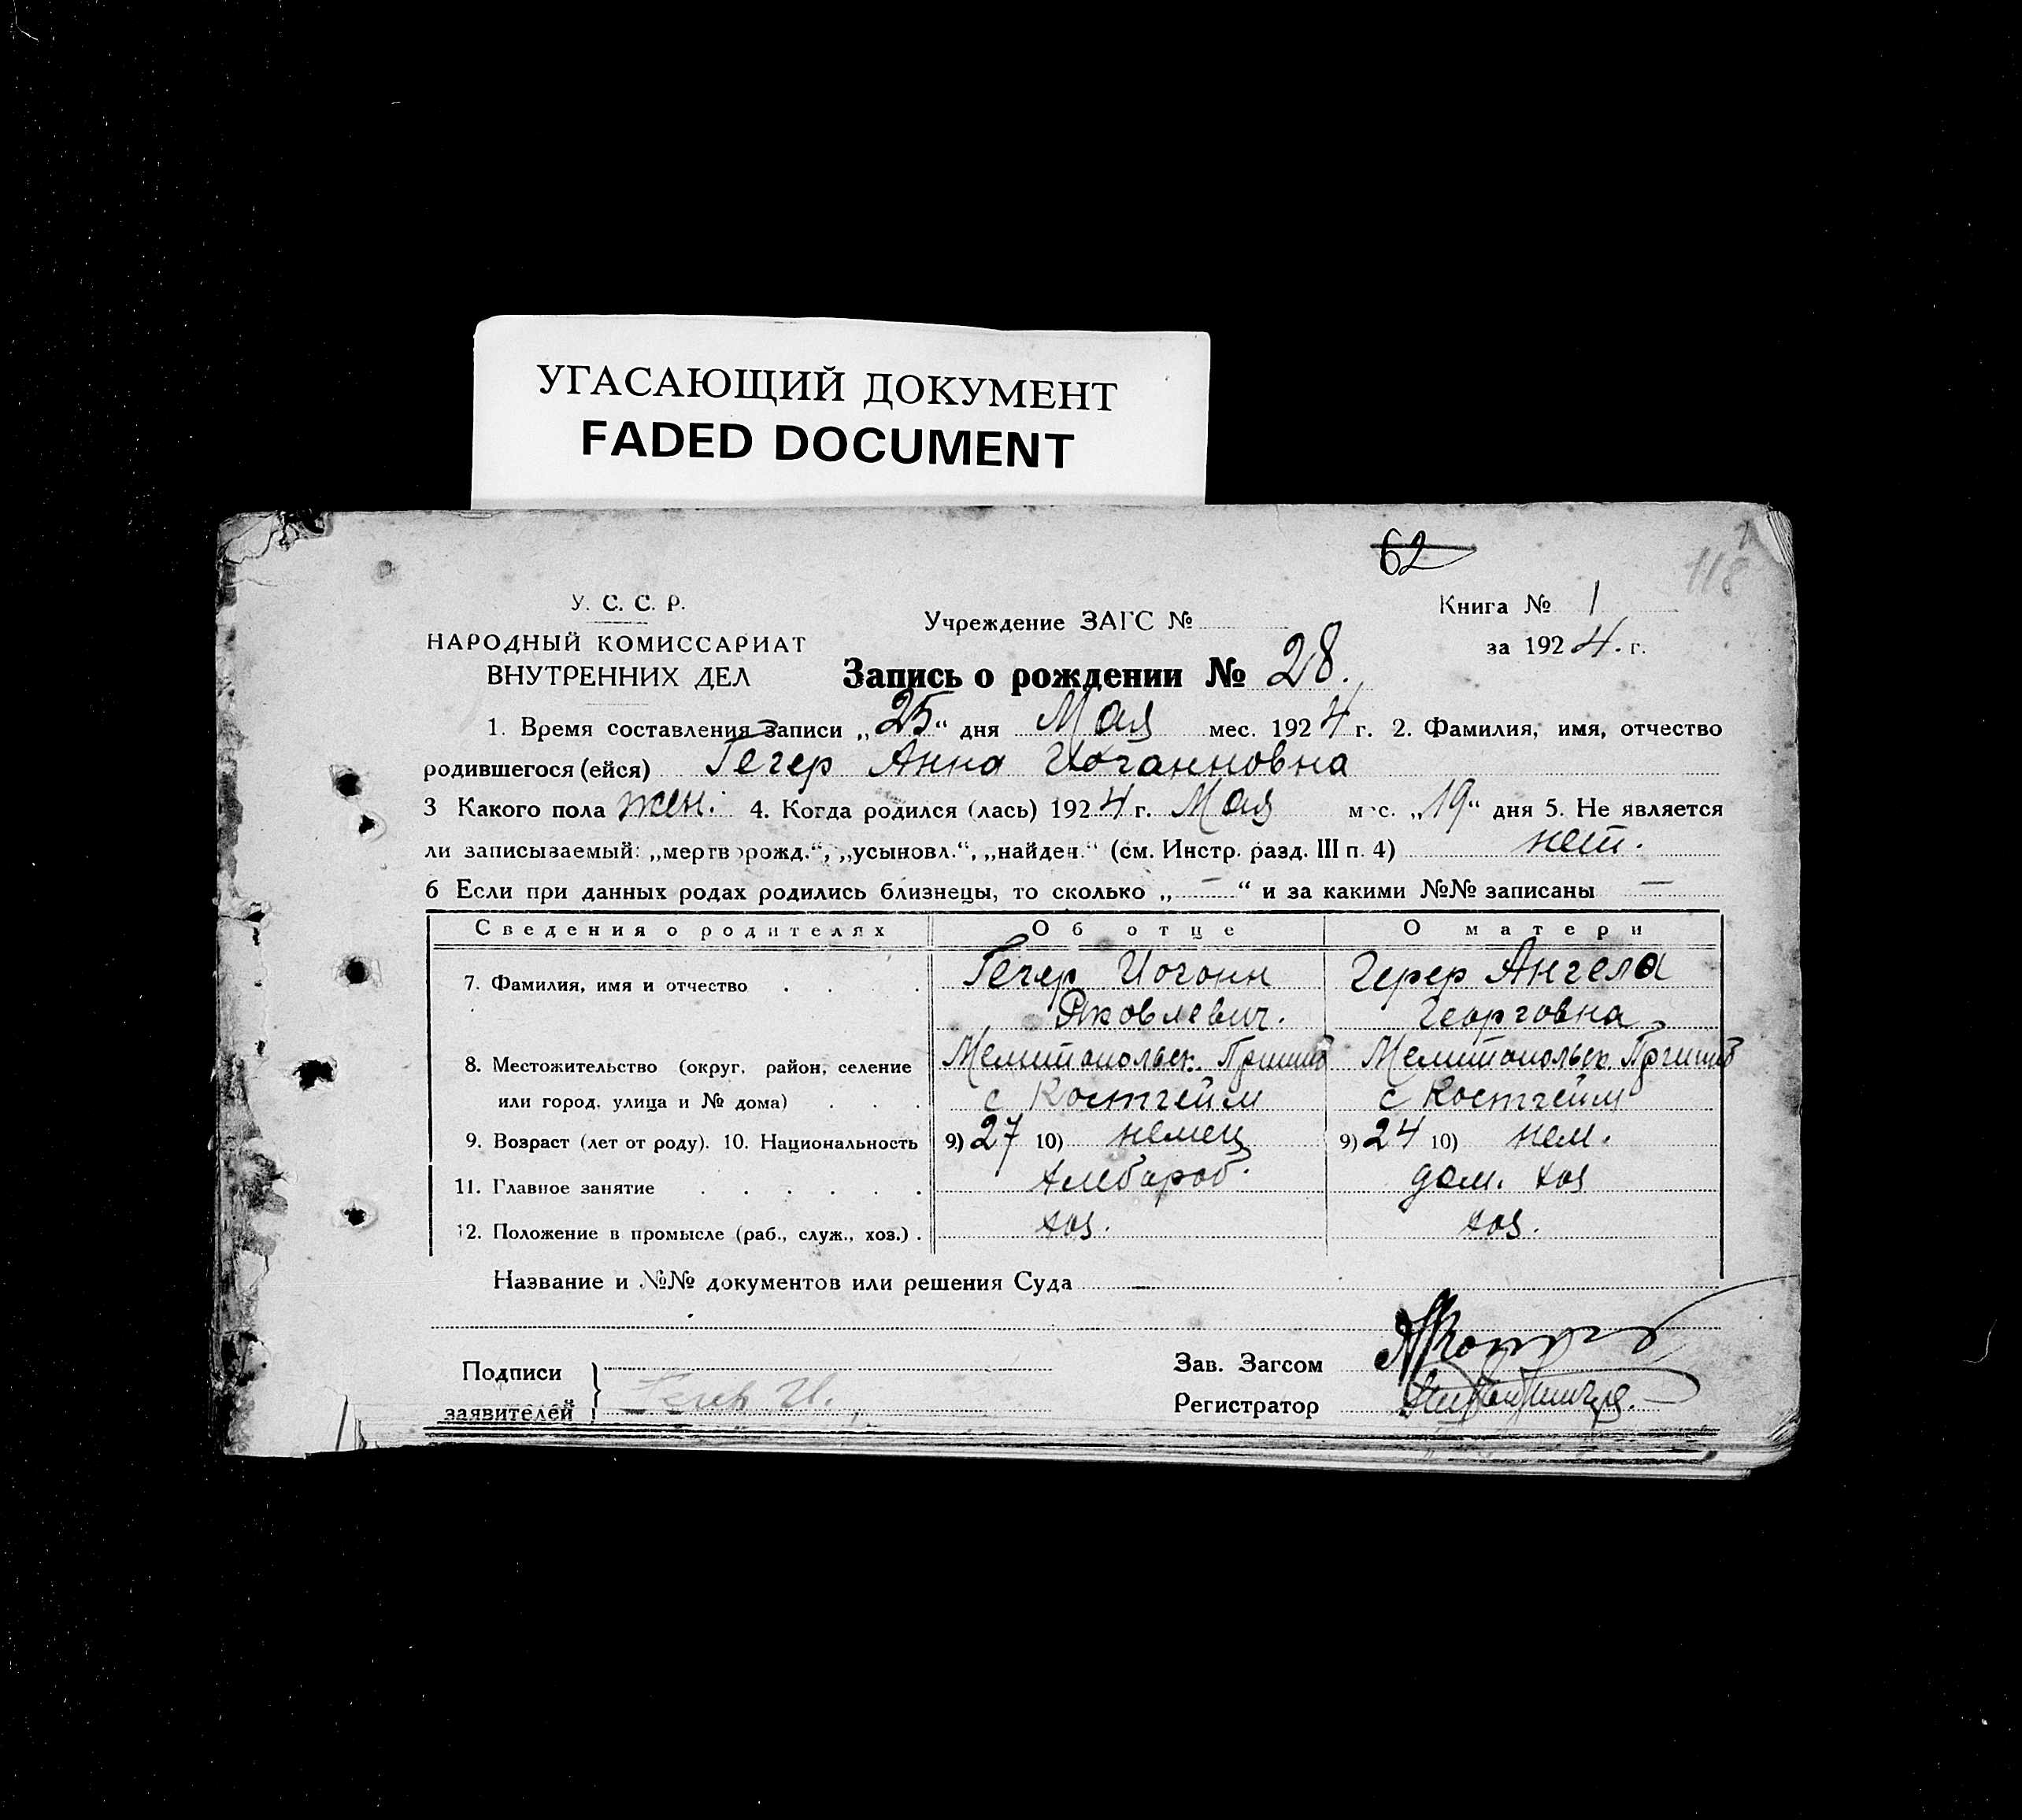 УГАСАЮЩИЙ ДОКУМЕНТ
FADED DOCUMENT
62
118
У. С. С. Р.
НАРОДНЫЙ КОМИССАРИАТ
ВНУТРЕННИХ ДЕЛ
Учреждение ЗАГС №
Книга № 1
за 1924. г.
Запись о рождении № 28.
1. Время составления записи „25“ дня Мая мес. 1924 г. 2. Фамилия, имя, отчество
родившегося (ейся) Гегер Анна Иоганновна
3 Какого пола жен. 4. Когда родился (лась) 1924 г. Мая мес. „19“ дня 5. Не является
ли записываемый: „мертворожд.“, „усыновл.“, „найден.“ (см. Инстр. разд. III п. 4) нет.
6 Если при данных родах родились близнецы, то сколько „—“ и за какими №№ записаны —
Сведения о родителях Об отце О матери
7. Фамилия, имя и отчество Гегер Иоганн Гегер Ангела
Яковлевич. Георговна
8. Местожительство (округ, район, селение Мелитопольск. Пришиб Мелитопольск. Пришиб
или город, улица и № дома) с Костгейм с Костгейм
9. Возраст (лет от роду). 10. Национальность 9) 27 10) немец 9) 24 10) нем.
11. Главное занятие хлебороб. дом. хоз
12. Положение в промысле (раб., служ., хоз.) хоз. хоз.
Название и №№ документов или решения Суда —
Подписи
заявителей
Зав. Загсом
Регистратор